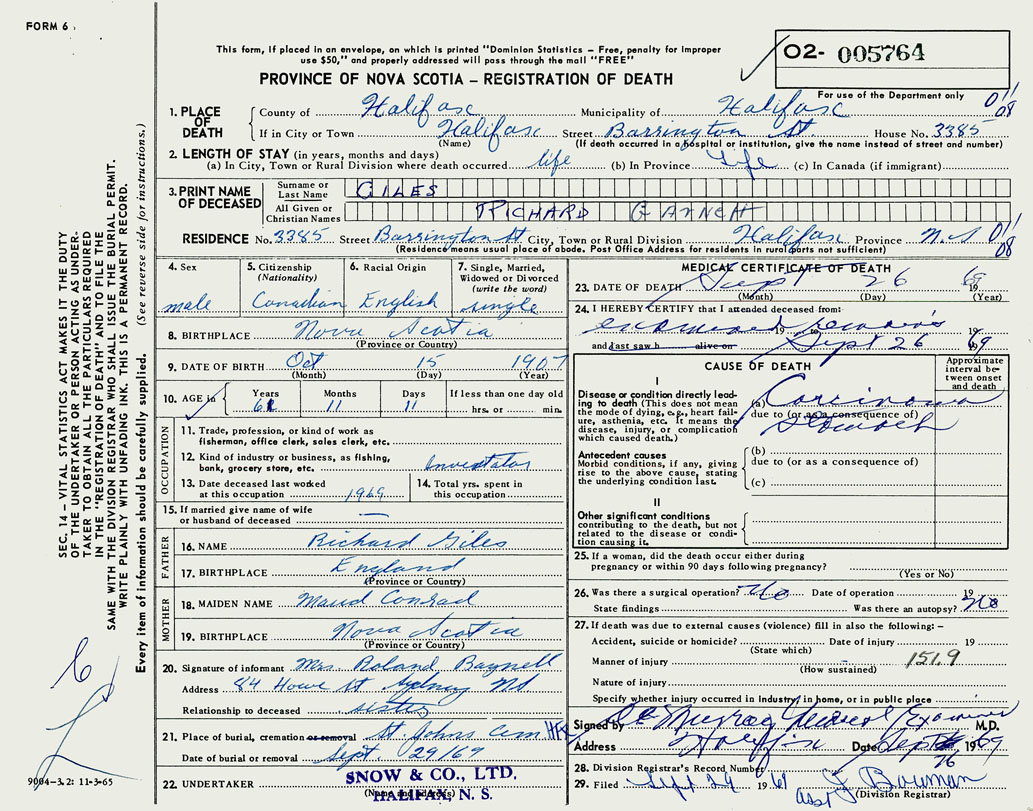 FORM 6
This form, if placed in an envelope, on which is printed "Dominion Statistics – Free, penalty for improper
use $50," and properly addressed will pass through the mail "FREE"
O2- 005764
For use of the Department only
PROVINCE OF NOVA SCOTIA – REGISTRATION OF DEATH
SEC. 14 – VITAL STATISTICS ACT MAKES IT THE DUTY
OF THE UNDERTAKER OR PERSON ACTING AS UNDER-
TAKER TO OBTAIN ALL THE PARTICULARS REQUIRED
IN THE "REGISTRATION OF DEATH" AND TO FILE THE
SAME WITH THE DIVISION REGISTRAR WHO SHALL ISSUE THE BURIAL PERMIT.
WRITE PLAINLY WITH UNFADING INK. THIS IS A PERMANENT RECORD.
Every item of information should be carefully supplied. (See reverse side for instructions.)
1. PLACE OF DEATH
County of Halifax Municipality of Halifax 08
If in City or Town Halifax Street Barrington St. House No. 3385
(Name) (If death occurred in a hospital or institution, give the name instead of street and number)
2. LENGTH OF STAY (in years, months and days)
(a) In City, Town or Rural Division where death occurred life (b) In Province Life (c) In Canada (if immigrant)
3. PRINT NAME OF DECEASED
Surname or Last Name GILES
All Given or Christian Names RICHARD GARNETT
RESIDENCE No. 3385 Street Barrington St City, Town or Rural Division Halifax Province N.S 08
(Residence means usual place of abode. Post Office Address for residents in rural parts not sufficient)
4. Sex male
5. Citizenship (Nationality) Canadian
6. Racial Origin English
7. Single, Married, Widowed or Divorced (write the word) single
8. BIRTHPLACE Nova Scotia
(Province or Country)
9. DATE OF BIRTH Oct 15 1907
(Month) (Day) (Year)
10. AGE in Years 61 Months 11 Days 11 If less than one day old hrs. or min.
OCCUPATION
11. Trade, profession, or kind of work as
fisherman, office clerk, sales clerk, etc.
12. Kind of industry or business, as fishing,
bank, grocery store, etc.
13. Date deceased last worked
at this occupation 1969
14. Total yrs. spent in
this occupation
15. If married give name of wife
or husband of deceased —
FATHER
16. NAME Richard Giles
17. BIRTHPLACE England
(Province or Country)
MOTHER
18. MAIDEN NAME Maud Conrad
19. BIRTHPLACE Nova Scotia
(Province or Country)
20. Signature of informant Mrs. Roland Bagnell
Address 84 Howe St Sydney NS
Relationship to deceased sister
21. Place of burial, cremation or removal St Johns Cem Hfx
Date of burial or removal Sept. 29/69
22. UNDERTAKER SNOW & CO., LTD.
(Name and address)
HALIFAX, N. S.
9004-3.2: 11-3-65
MEDICAL CERTIFICATE OF DEATH
23. DATE OF DEATH Sept 26 1969
(Month) (Day) (Year)
24. I HEREBY CERTIFY that I attended deceased from
examined remains 19
and last saw h alive on Sept 26 1969
CAUSE OF DEATH
Approximate interval between onset and death
I
Disease or condition directly lead-
ing to death (This does not mean
the mode of dying, e.g., heart fail-
ure, asthenia, etc. It means the
disease, injury, or complication
which caused death.)
(a) Carcinoma
due to (or as a consequence of)
stomach
Antecedent causes
Morbid conditions, if any, giving
rise to the above cause, stating
the underlying condition last.
(b)
due to (or as a consequence of)
(c)
II
Other significant conditions
contributing to the death, but not
related to the disease or condi-
tion causing it.
25. If a woman, did the death occur either during
pregnancy or within 90 days following pregnancy?
(Yes or No)
26. Was there a surgical operation? No Date of operation 19
State findings Was there an autopsy? No
27. If death was due to external causes (violence) fill in also the following: –
Accident, suicide or homicide? Date of injury 19
(State which)
Manner of injury 151.9
(How sustained)
Nature of injury
Specify whether injury occurred in Industry, in home, or in public place
Signed by Murray Medical Examiner M.D.
Address Halifax Date Sept 26 1969
28. Division Registrar's Record Number
29. Filed Sept 29 1969 Asst J Bowman
(Division Registrar)